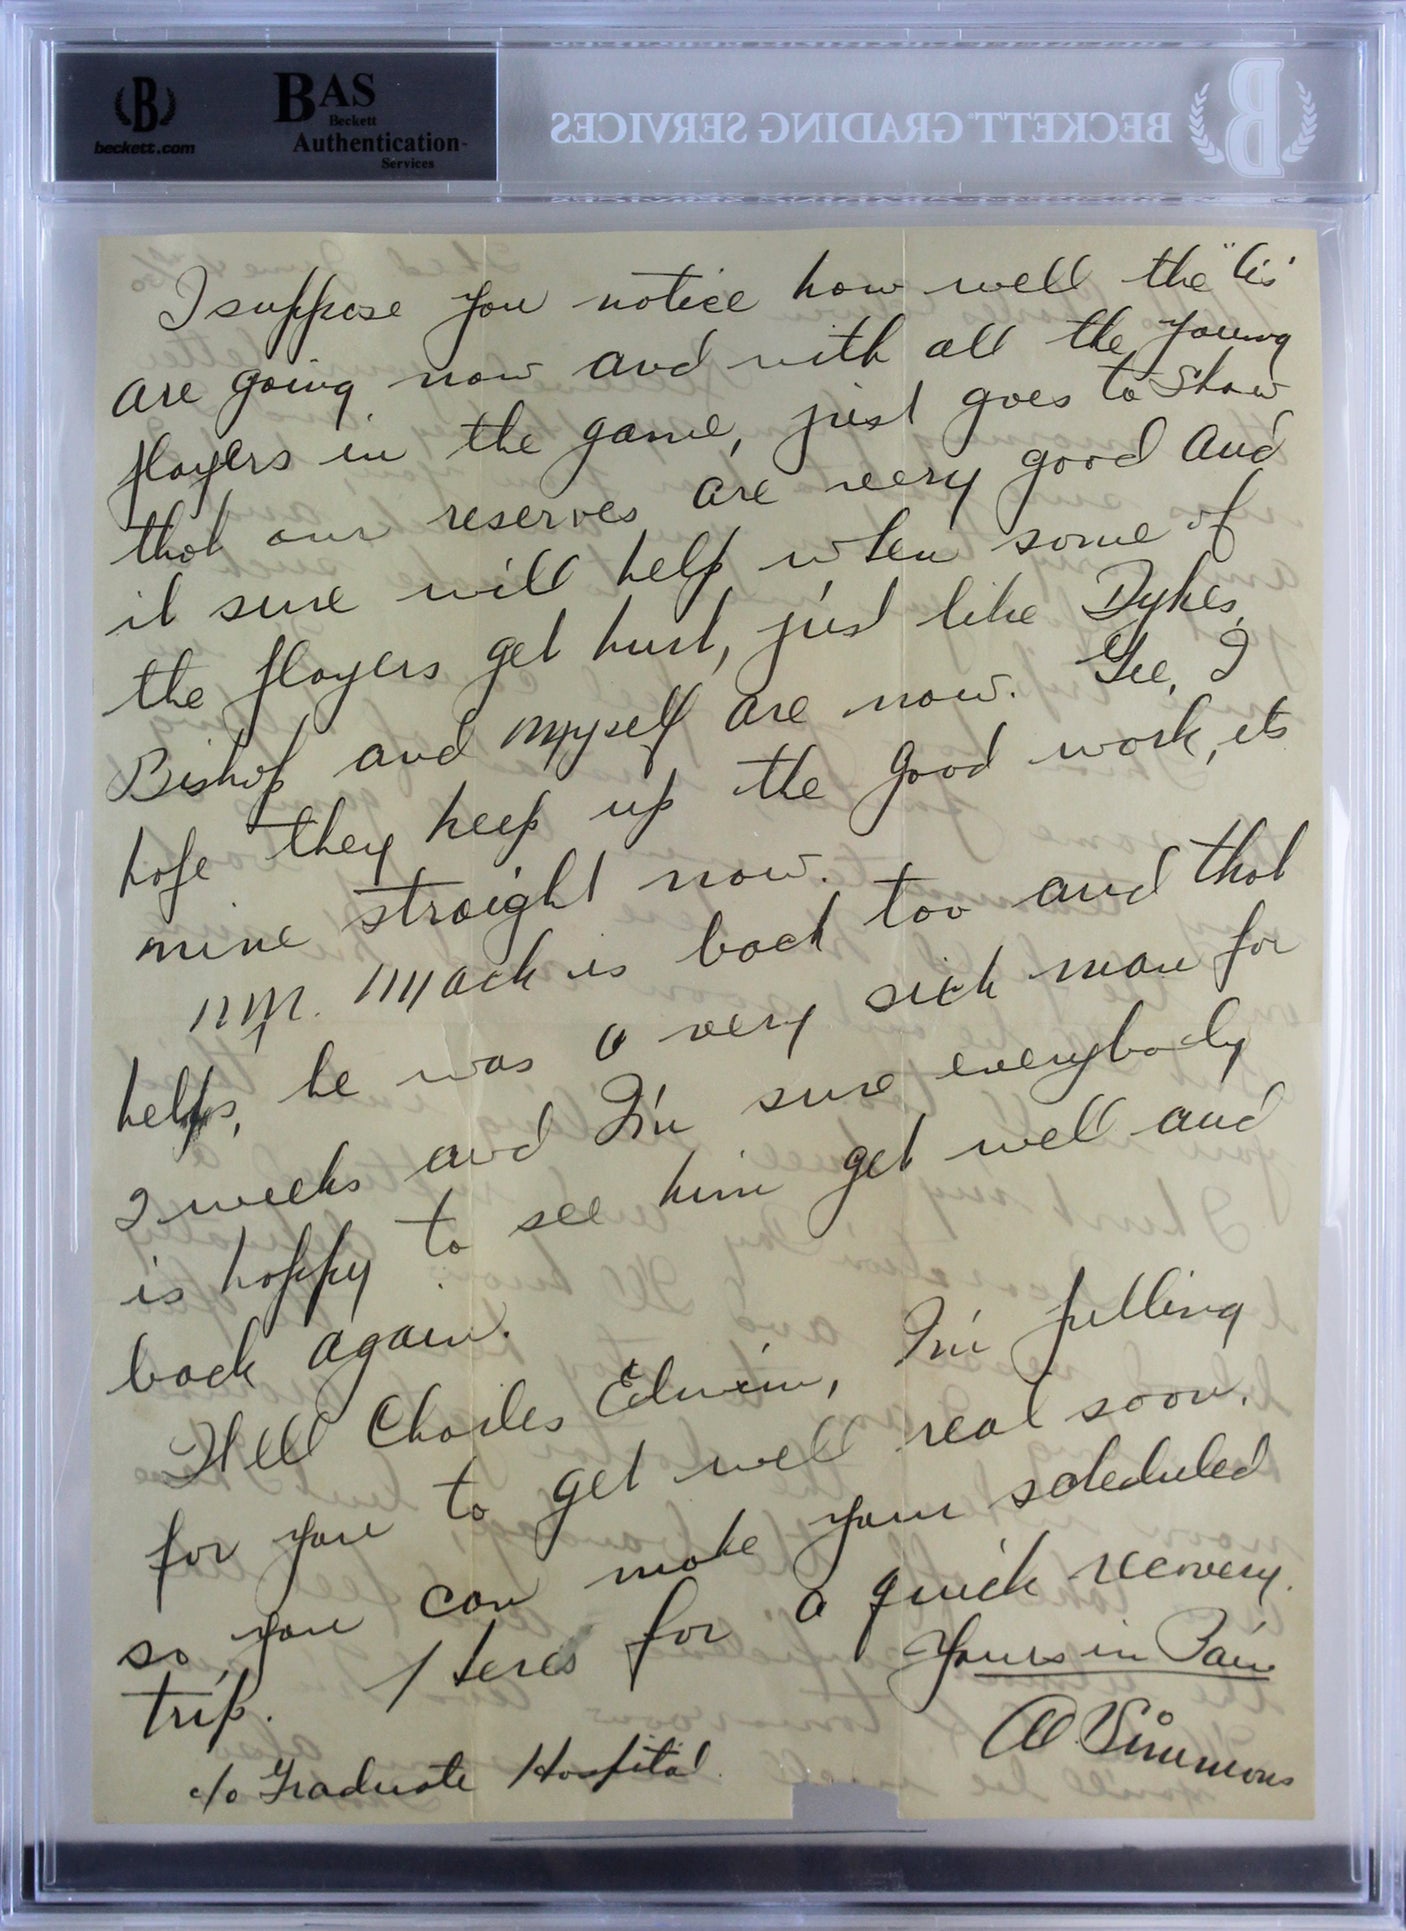 B
beckett.com
BAS
Beckett
Authentication
Services
BECKETT GRADING SERVICES
I suppose you notice how well the "A's"
are going now and with all the young
players in the game, just goes to show
that our reserves are very good and
it sure will help when some of
the players get hurt, just like Dykes,
Bishop and myself are now. Gee, I
hope they keep up the good work, its
nine straight now.
Mr. Mack is back too and that
helps, he was a very sick man for
2 weeks and I'm sure everybody
is happy to see him get well and
back again.
Well Charles Edwin, I'm pulling
for you to get well real soon.
so you can make your scheduled
trip. Heres for a quick recovery.
Yours in Pain
Al. Simmons
c/o Graduate Hospital.